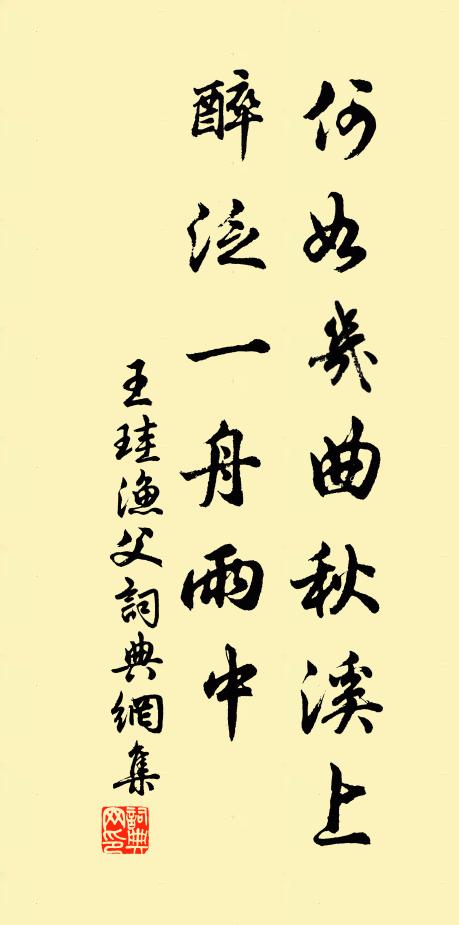 何如幾曲秋溪上
醉泛一舟雨中
王珪漁父詞典網集
詞典網印